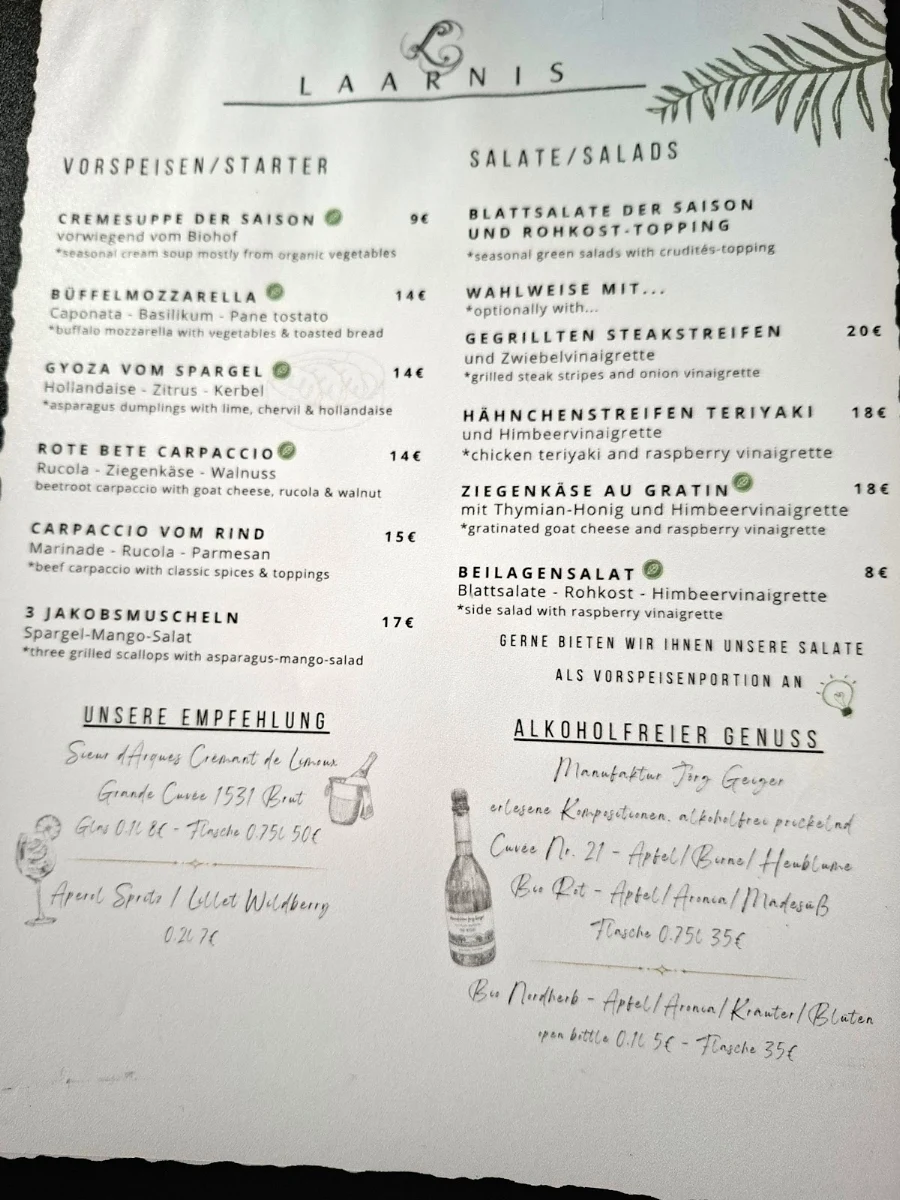 L
LAARNIS
VORSPEISEN/STARTER
CREMESUPPE DER SAISON 9€
vorwiegend vom Biohof
*seasonal cream soup mostly from organic vegetables
BÜFFELMOZZARELLA 14€
Caponata - Basilikum - Pane tostato
*buffalo mozzarella with vegetables & toasted bread
GYOZA VOM SPARGEL 14€
Hollandaise - Zitrus - Kerbel
*asparagus dumplings with lime, chervil & hollandaise
ROTE BETE CARPACCIO 14€
Rucola - Ziegenkäse - Walnuss
beetroot carpaccio with goat cheese, rucola & walnut
CARPACCIO VOM RIND 15€
Marinade - Rucola - Parmesan
*beef carpaccio with classic spices & toppings
3 JAKOBSMUSCHELN 17€
Spargel-Mango-Salat
*three grilled scallops with asparagus-mango-salad
UNSERE EMPFEHLUNG
Sieur d'Arques Crémant de Limoux
Grande Cuvée 1531 Brut
Glas 0.1l 8€ - Flasche 0.75l 50€
Aperol Spritz / Lillet Wildberry
0.2l 7€
SALATE/SALADS
BLATTSALATE DER SAISON
UND ROHKOST-TOPPING
*seasonal green salads with crudités-topping
WAHLWEISE MIT...
*optionally with...
GEGRILLTEN STEAKSTREIFEN 20€
und Zwiebelvinaigrette
*grilled steak stripes and onion vinaigrette
HÄHNCHENSTREIFEN TERIYAKI 18€
und Himbeervinaigrette
*chicken teriyaki and raspberry vinaigrette
ZIEGENKÄSE AU GRATIN 18€
mit Thymian-Honig und Himbeervinaigrette
*gratinated goat cheese and raspberry vinaigrette
BEILAGENSALAT 8€
Blattsalate - Rohkost - Himbeervinaigrette
*side salad with raspberry vinaigrette
GERNE BIETEN WIR IHNEN UNSERE SALATE
ALS VORSPEISENPORTION AN
ALKOHOLFREIER GENUSS
Manufaktur Jörg Geiger
erlesene Kompositionen, alkoholfrei prickelnd
Cuvée Nr. 21 - Apfel/Birne/Heublume
Bio Rot - Apfel/Aronia/Mädesüß
Flasche 0.75l 35€
Bio Nordherb - Apfel/Aronia/Kräuter/Blüten
open bottle 0.1l 5€ - Flasche 35€